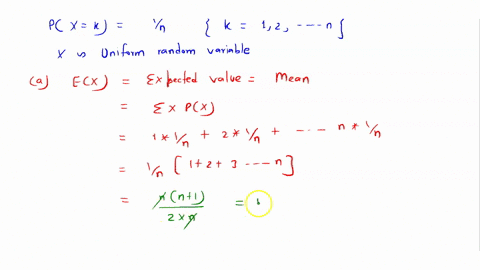 P(X=k) = 1/n { k = 1,2, ---- n }
X is Uniform random variable
(a) E(X) = Expected value = Mean
= Σ x P(x)
= 1 * 1/n + 2 * 1/n + --- n * 1/n
= 1/n [ 1+2+3 ---- n ]
= n(n+1) / 2×n =